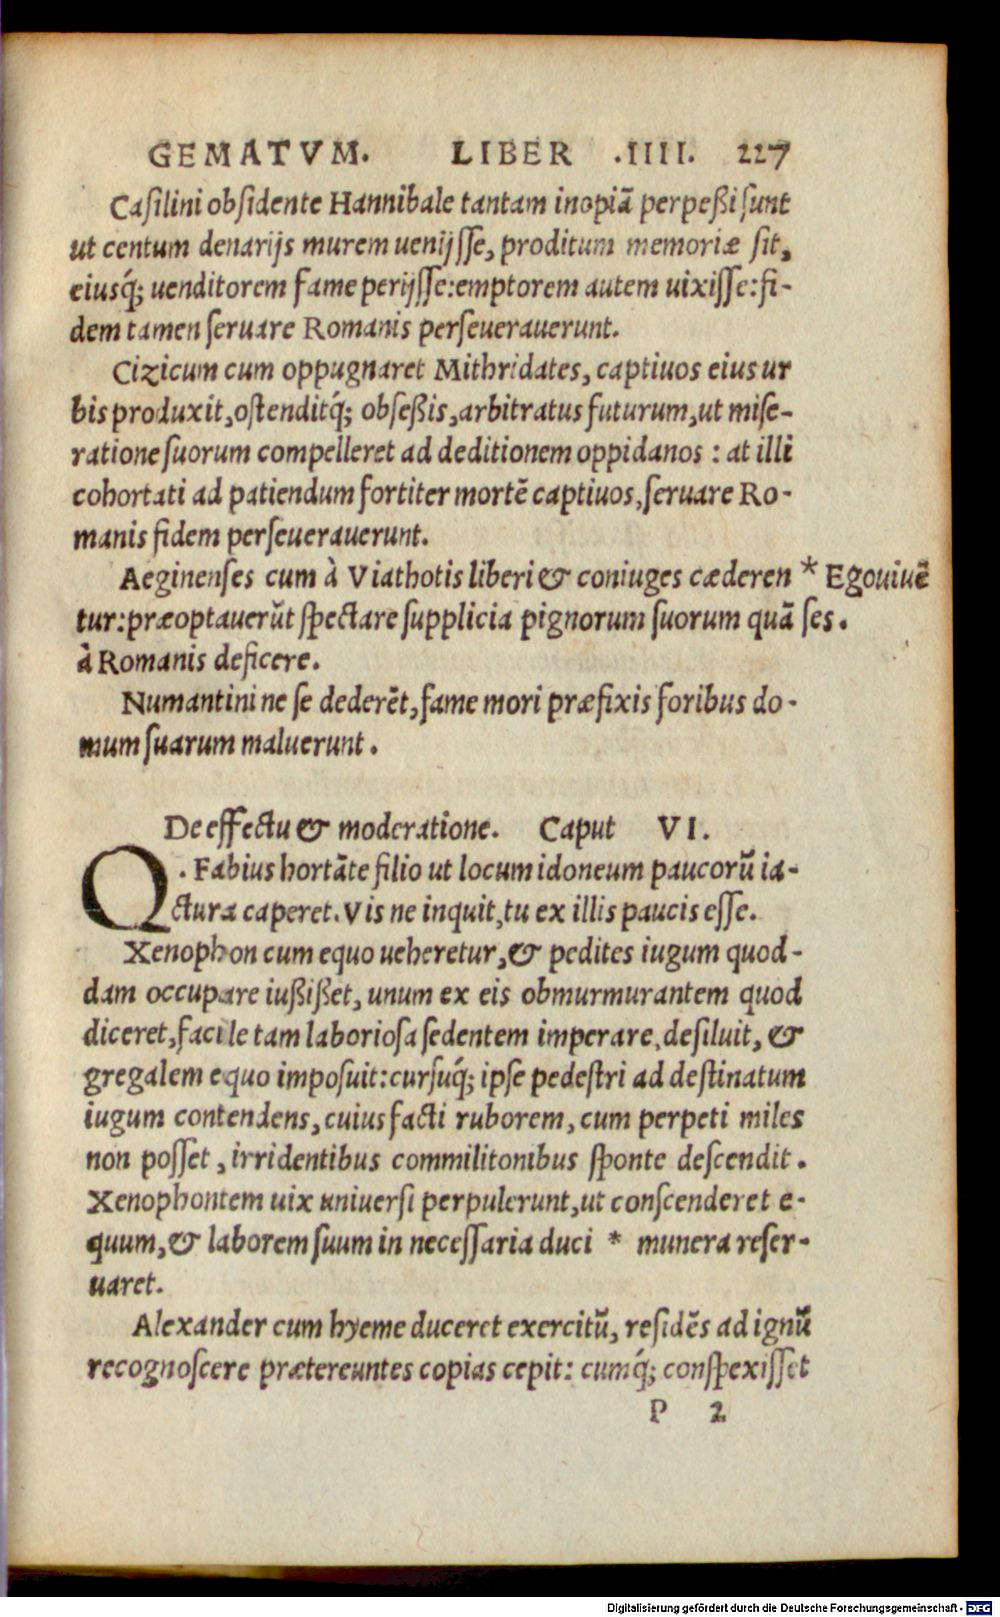 GEMATVM. LIBER .IIII. 227
Casilini obsidente Hannibale tantam inopiā perpeßi sunt
ut centum denarijs murem uenijsse, proditum memoriæ sit,
eiusq́; uenditorem fame perijsse:emptorem autem uixisse:fi-
dem tamen seruare Romanis perseuerauerunt.
Cizicum cum oppugnaret Mithridates, captiuos eius ur
bis produxit,ostenditq́; obseßis,arbitratus futurum,ut mise-
ratione suorum compelleret ad deditionem oppidanos : at illi
cohortati ad patiendum fortiter mortē captiuos,seruare Ro-
manis fidem perseuerauerunt.
Aeginenses cum à Viathotis liberi & coniuges cæderen * Egouiuē
tur:præoptauerūt spectare supplicia pignorum suorum quā ses.
à Romanis deficere.
Numantini ne se dederēt,fame mori præfixis foribus do-
mum suarum maluerunt.
De effectu & moderatione. Caput VI.
Q. Fabius hortāte filio ut locum idoneum paucorū ia-
ctura caperet. Vis ne inquit,tu ex illis paucis esse.
Xenophon cum equo ueheretur,& pedites iugum quod-
dam occupare iußißet, unum ex eis obmurmurantem quod
diceret,facile tam laboriosa sedentem imperare,desiluit, &
gregalem equo imposuit:cursuq́; ipse pedestri ad destinatum
iugum contendens,cuius facti ruborem,cum perpeti miles
non posset,irridentibus commilitonibus sponte descendit.
Xenophontem uix uniuersi perpulerunt,ut conscenderet e-
quum,& laborem suum in necessaria duci * munera reser-
uaret.
Alexander cum hyeme duceret exercitū, residēs ad ignū
recognoscere prætereuntes copias cepit: cumq́; conspexisset
P 2
Digitalisierung gefördert durch die Deutsche Forschungsgemeinschaft - DFG